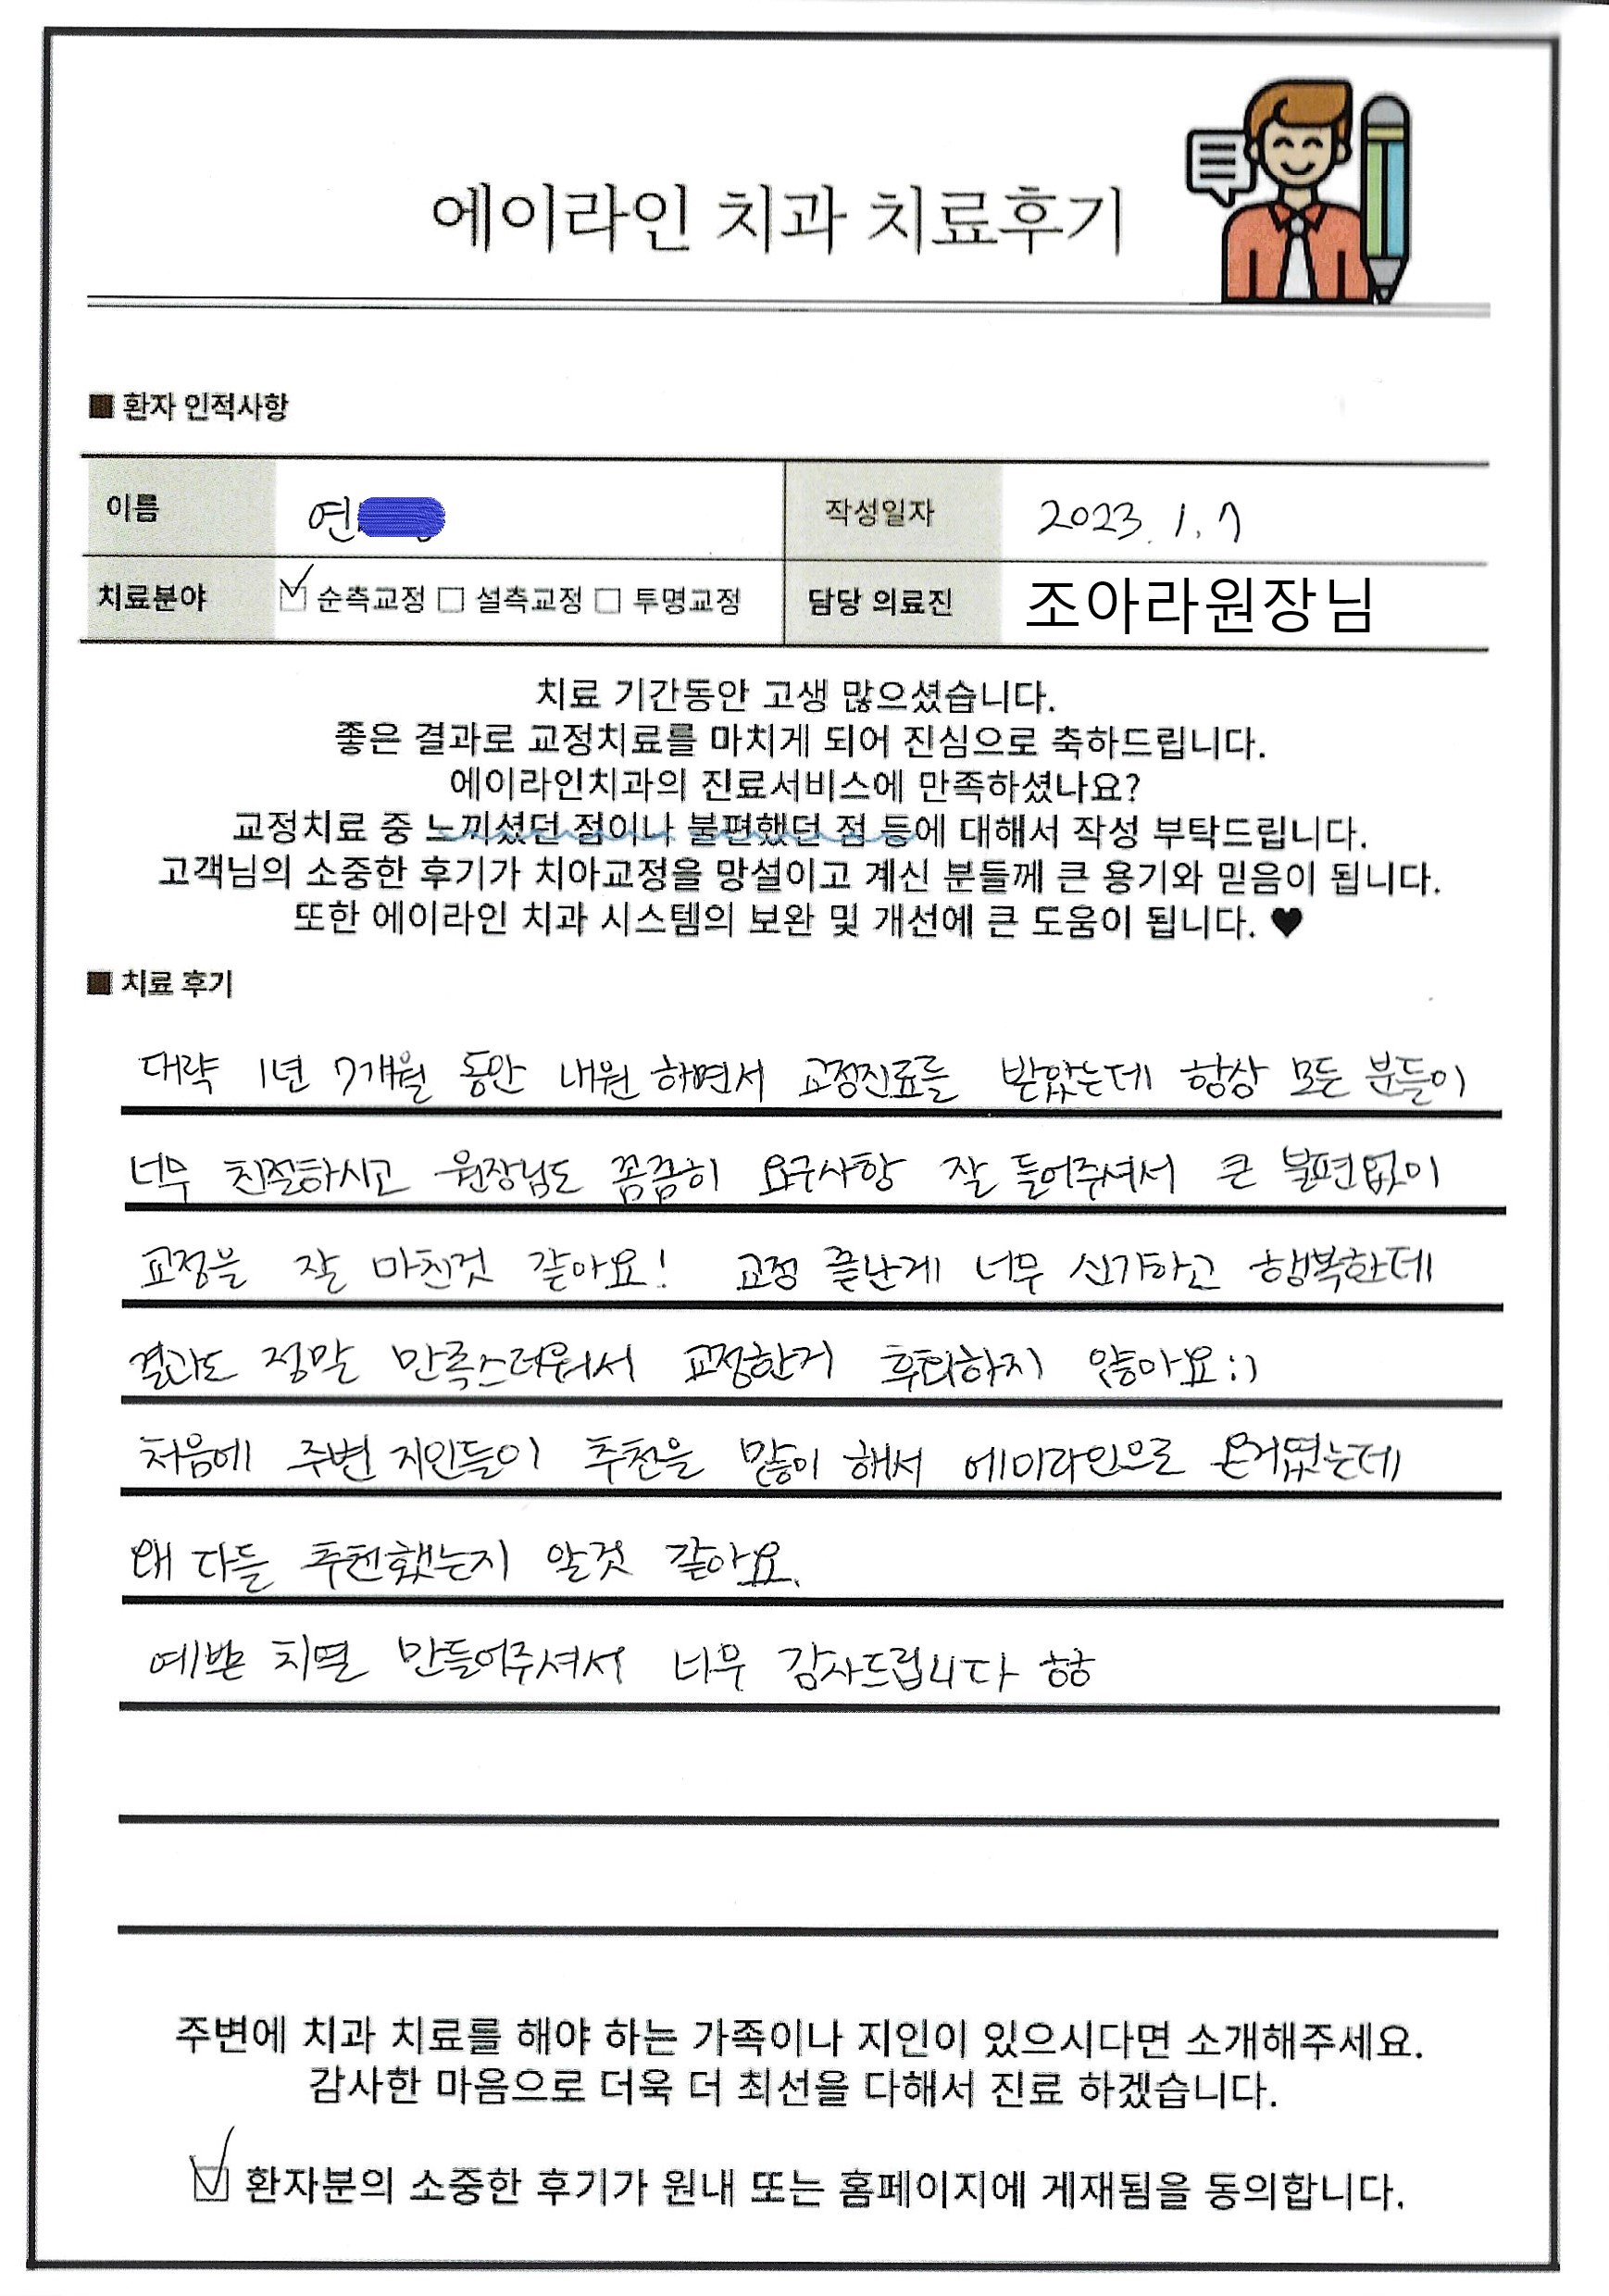 에이라인 치과 치료후기
■ 환자 인적사항
이름 연 작성일자 2023. 1. 7
치료분야 ☑ 순측교정 □ 설측교정 □ 투명교정 담당 의료진 조아라원장님
치료 기간동안 고생 많으셨습니다.
좋은 결과로 교정치료를 마치게 되어 진심으로 축하드립니다.
에이라인치과의 진료서비스에 만족하셨나요?
교정치료 중 느끼셨던 점이나 불편했던 점 등에 대해서 작성 부탁드립니다.
고객님의 소중한 후기가 치아교정을 망설이고 계신 분들께 큰 용기와 믿음이 됩니다.
또한 에이라인 치과 시스템의 보완 및 개선에 큰 도움이 됩니다. ♥
■ 치료 후기
대략 1년 7개월 동안 내원 하면서 교정진료를 받았는데 항상 모든 분들이
너무 친절하시고 원장님도 꼼꼼히 요구사항 잘 들어주셔서 큰 불편없이
교정을 잘 마친것 같아요! 교정 끝난게 너무 신기하고 행복한데
결과도 정말 만족스러워서 교정한거 후회하지 않아요:)
처음에 주변 지인들이 추천을 많이 해서 에이라인으로 온거였는데
왜 다들 추천했는지 알것 같아요.
예쁜 치열 만들어주셔서 너무 감사드립니다 ㅎㅎ
주변에 치과 치료를 해야 하는 가족이나 지인이 있으시다면 소개해주세요.
감사한 마음으로 더욱 더 최선을 다해서 진료 하겠습니다.
☑ 환자분의 소중한 후기가 원내 또는 홈페이지에 게재됨을 동의합니다.